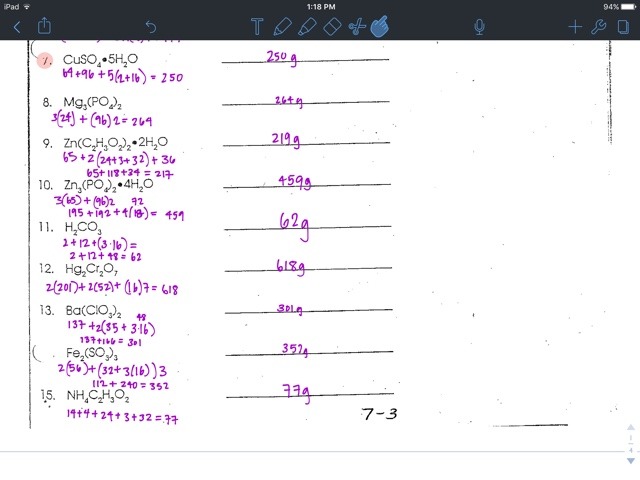 iPad 1:18 PM 94%
7. CuSO₄•5H₂O 250 g
64+96+5(2+16) = 250
8. Mg₃(PO₄)₂ 264 g
3(24) + (96)2 = 264
9. Zn(C₂H₃O₂)₂•2H₂O 219 g
65+2(24+3+32)+36
65+118+34 = 217
10. Zn₃(PO₄)₂•4H₂O 459g
3(65)+(96)2 72
195+192+4(18) = 459
11. H₂CO₃ 62g
2+12+(3·16) =
2+12+48 = 62
12. Hg₂Cr₂O₇ 618g
2(201)+2(52)+(16)7 = 618
13. Ba(ClO₃)₂ 301g
48
137+2(35+3·16)
137+166 = 301
Fe₂(SO₃)₃ 352g
2(56)+(32+3(16))3
112+240 = 352
15. NH₄C₂H₃O₂ 77g
14+4+24+3+32 = 77
7-3
1
4